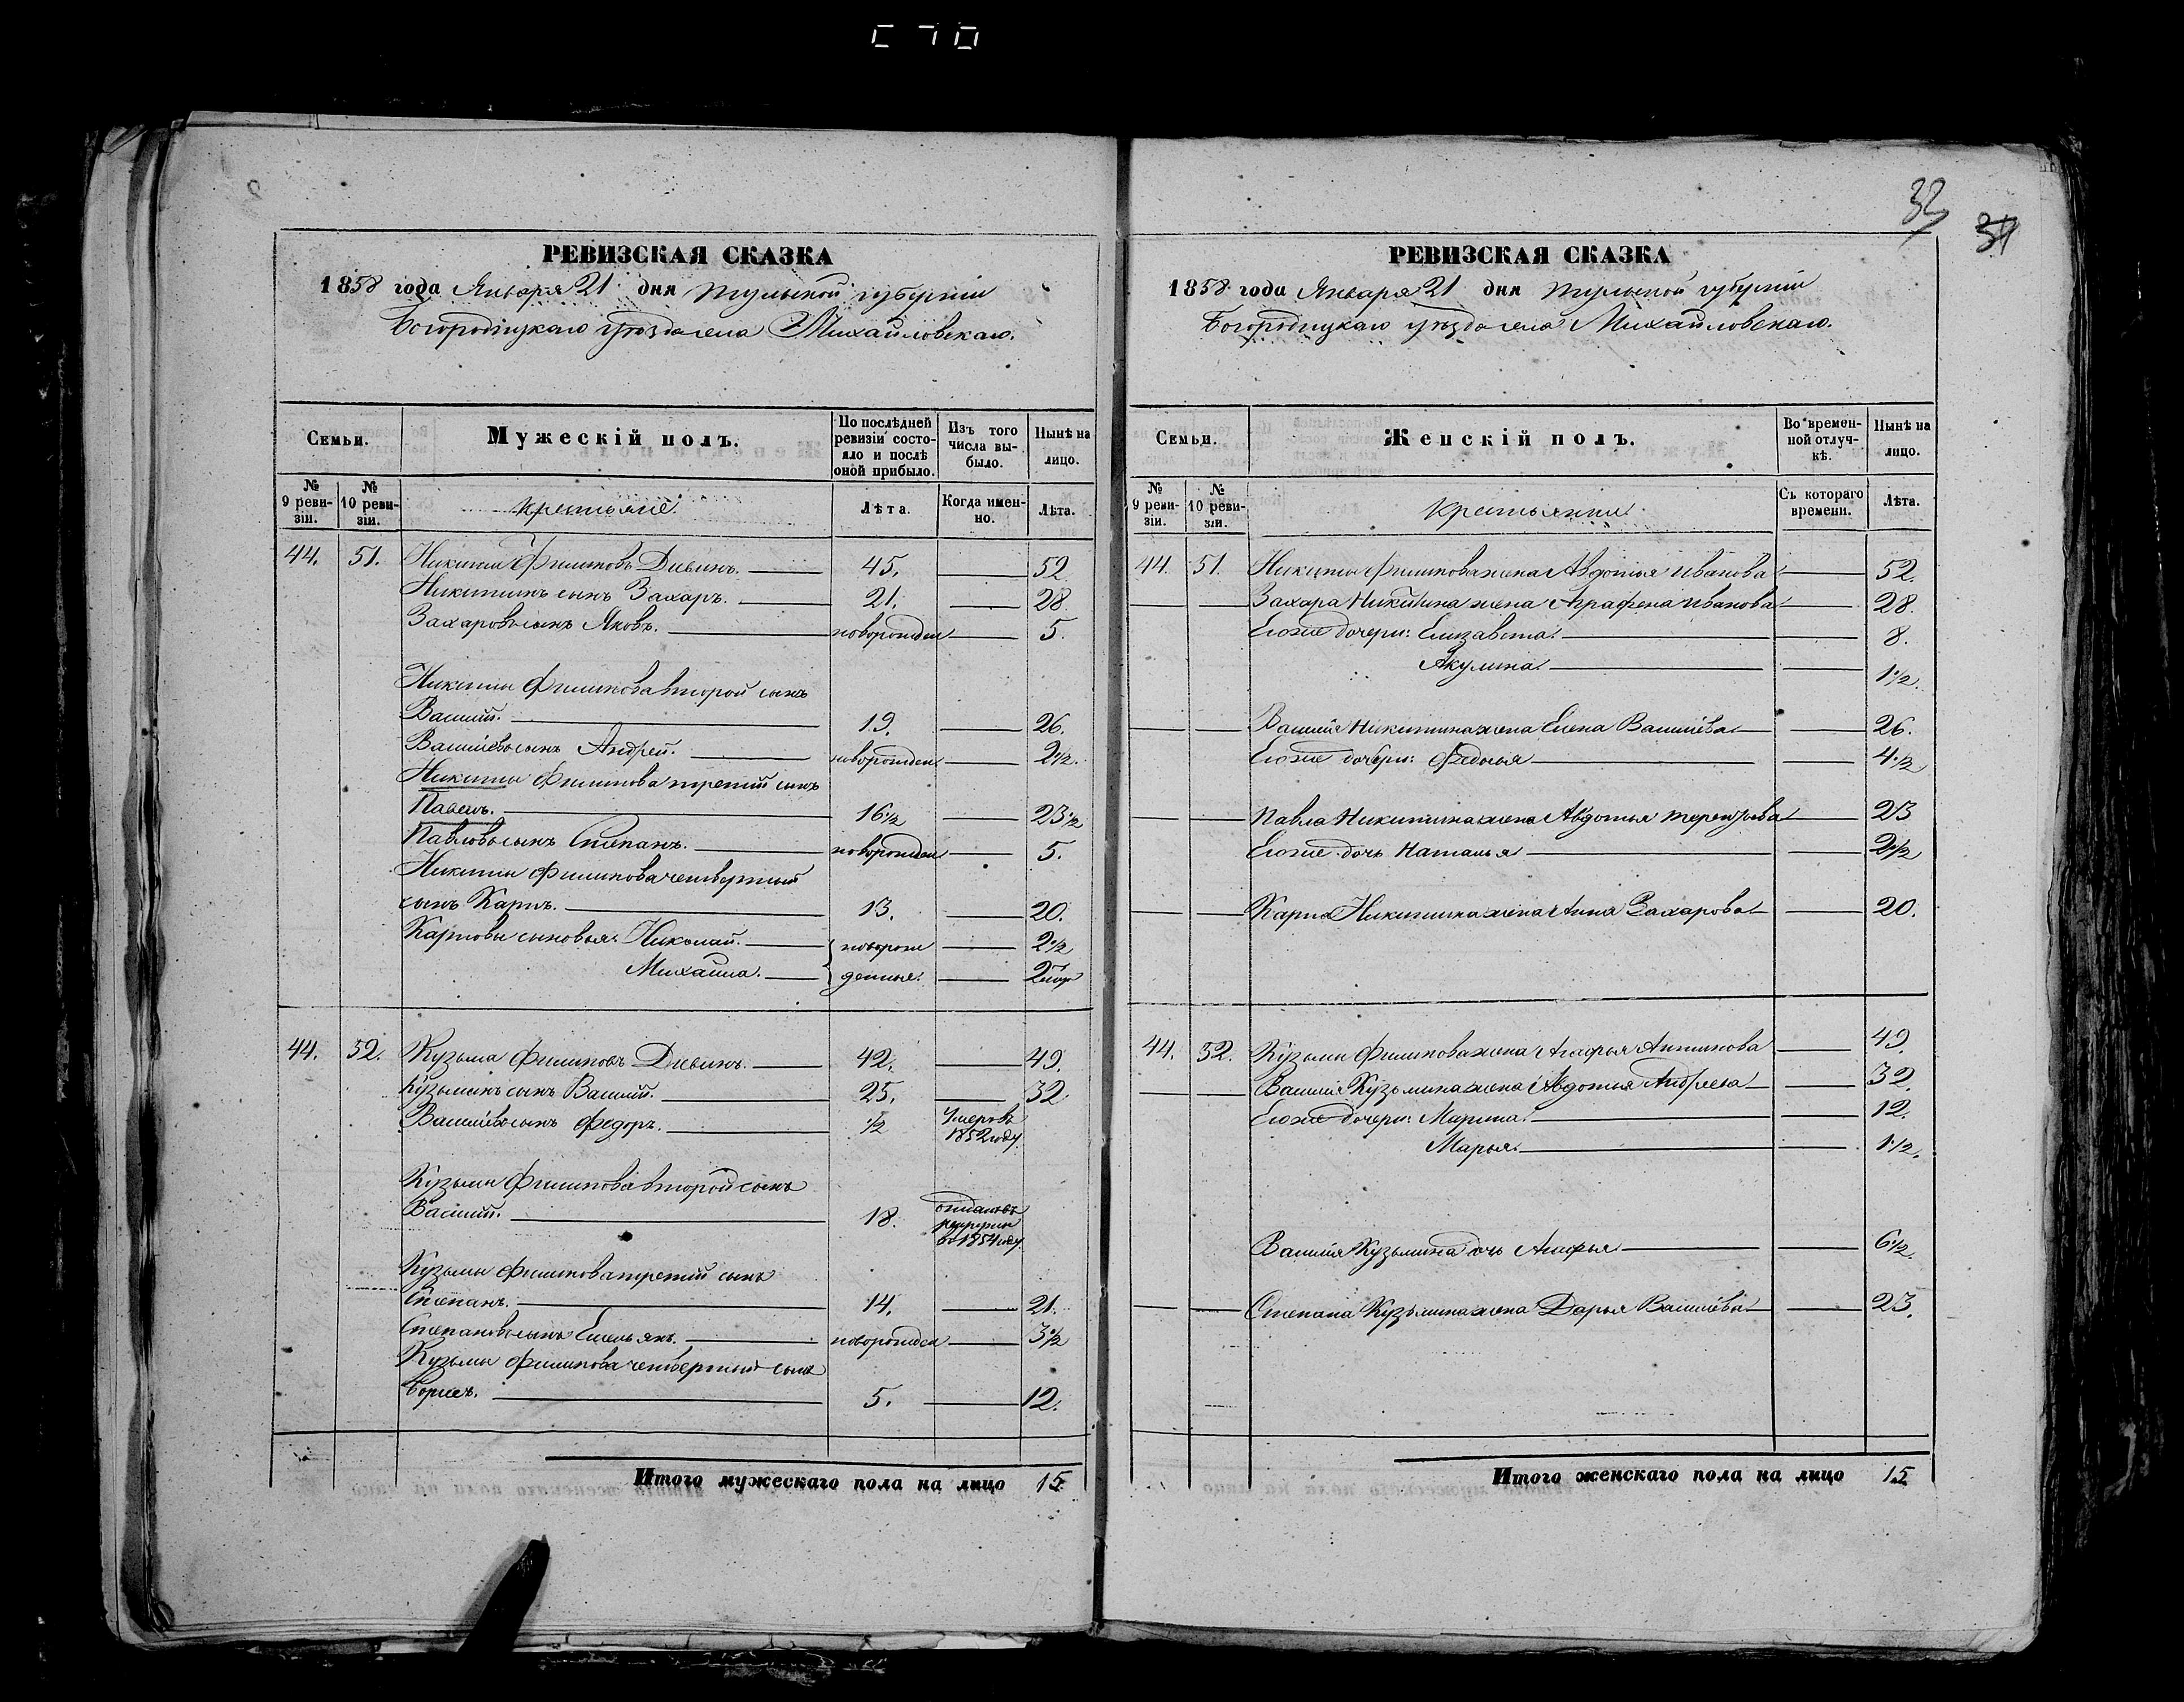 32
31
РЕВИЗСКАЯ СКАЗКА
1858 года Января 21 дня Тульской губернiи
Богородицкаго уѣзда села Михайловскаго.
Семьи.
Мужескiй полъ.
По послѣдней ревизiи состояло и послѣ оной прибыло.
Изъ того числа выбыло.
Нынѣ на лицо.
№ 9 ревизiи.
№ 10 ревизiи.
Крестьяне.
Лѣта.
Когда именно.
Лѣта.
44. 51. Никита Филиповъ Дивинъ. 45. 52.
Никитинъ сынъ Захаръ. 21. 28.
Захаровъ сынъ Яковъ. новорожден 5.
Никиты Филипова второй сынъ
Василiй. 19. 26.
Васильевъ сынъ Андрей. новорожден 2 1/2.
Никиты Филипова третiй сынъ
Павелъ. 16 1/2 23 1/2
Павловъ сынъ Степанъ. новорожден 5.
Никиты Филипова четвертый
сынъ Карпъ. 13. 20.
Карповы сыновья: Николай. новорож 2 1/2
Михайла. денные. 2 нед
44. 52. Кузьма Филиповъ Дивинъ. 42. 49.
Кузьминъ сынъ Василiй. 25. 32
Васильевъ сынъ Федоръ. 1/2 Умеръ въ 1852 году.
Кузьмы Филипова второй сынъ
Василiй. 18. отданъ въ рекруты во 1854 году
Кузьмы Филипова третiй сынъ
Степанъ. 14. 21.
Степановъ сынъ Емельянъ. новорожден 3 1/2
Кузьмы Филипова четвертый сынъ
Борисъ. 5. 12.
Итого мужескаго пола на лицо 15.
РЕВИЗСКАЯ СКАЗКА
1858 года Января 21 дня Тульской губернiи
Богородицкаго уѣзда села Михайловскаго.
Семьи.
Женскiй полъ.
Во временной отлучкѣ.
Нынѣ на лицо.
№ 9 ревизiи.
№ 10 ревизiи.
Крестьянки
Съ котораго времени.
Лѣта.
44. 51. Никиты Филипова жена Авдотья Иванова 52.
Захара Никитина жена Аграфена Иванова 28.
Егоже дочери: Елизавета. 8.
Акулина 1 1/2.
Василiя Никитина жена Елена Васильева 26.
Егоже дочери: Федосья 4 1/2
Павла Никитина жена Авдотья Терентьева 23
Егоже дочь Наталья 2 1/2
Карпа Никитина жена Анна Захарова 20.
44. 52. Кузьмы Филипова жена Агафья Антипова 49.
Василiя Кузьмина жена Авдотья Андреева 32.
Егоже дочери: Марина. 12.
Марья. 1 1/2.
Василiя Кузьмина дочь Агафья 6 1/2.
Степана Кузьмина жена Дарья Васильева 23.
Итого женскаго пола на лицо 15